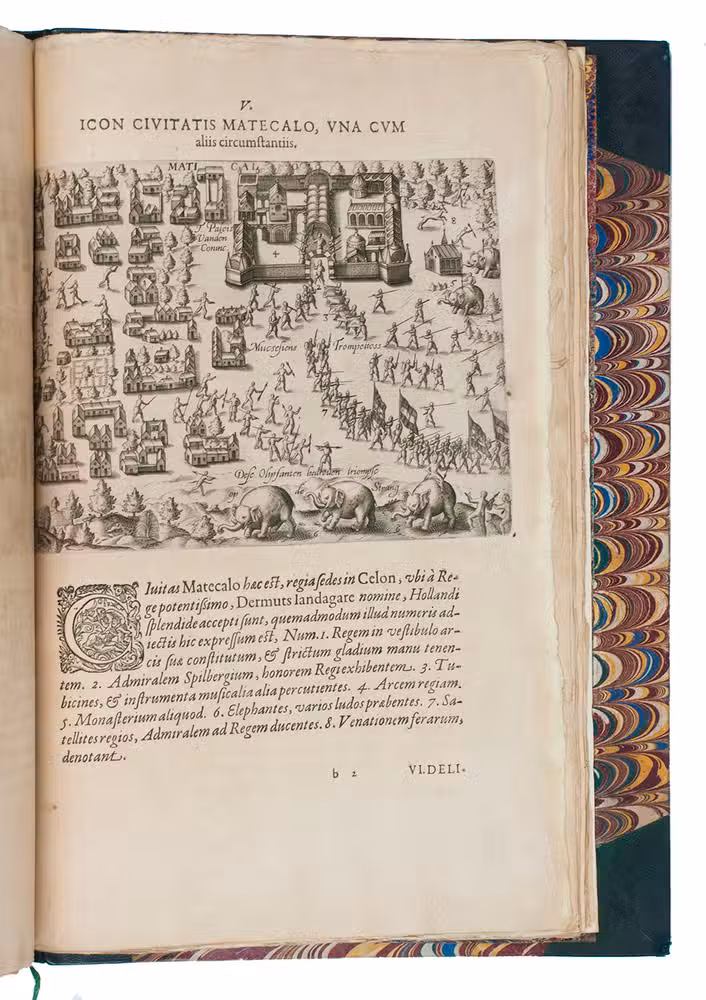 V.
ICON CIVITATIS MATECALO, VNA CVM
aliis circumſtantiis.
MATI CAL
T Paleis
Vanden
Coninc
8
4
5
3
Trompetters
7
Deſe Oliphanten bedreden triumphe
op de Strang
6
CIuitas Matecalo hæc eſt, regia ſedes in Celon, vbi à Re-
ge potentiſsimo, Dermuts Iandagare nomine, Hollandi
ſplendide accepti ſunt, quemadmodum illud numeris ad-
iectis hic expreſſum eſt, Num. 1. Regem in veſtibulo ar-
cis ſuæ conſtitutum, & ſtrictum gladium manu tenen-
tem. 2. Admiralem Spilbergium, honorem Regi exhibentem. 3. Tu-
bicines, & inſtrumenta muſicalia alia percutientes. 4. Arcem regiam.
5. Monaſterium aliquod. 6. Elephantes, varios ludos præbentes. 7. Sa-
tellites regios, Admiralem ad Regem ducentes. 8. Venationem ferarum,
denotant.
b 2 VI. DELI-